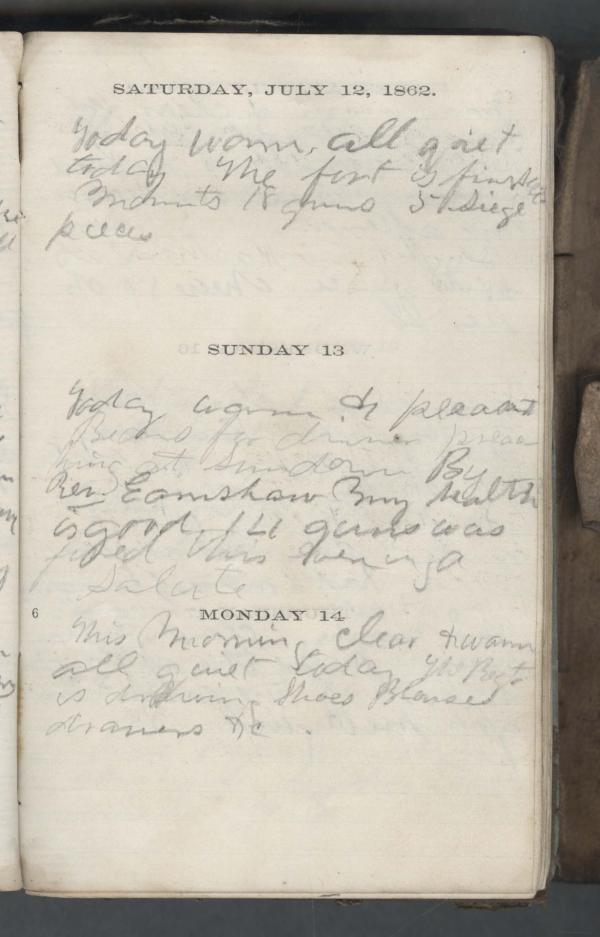 SATURDAY, JULY 12, 1862.
Today warm, all quiet
today The fort is finished
Mounts 18 guns 5 Siege
pieces
SUNDAY 13
Today warm & pleasant
Beans for dinner preac
hing at Sundown By
Rev. Earnshaw My health
is good, 14 guns was
fired this evening a
Salute
6
MONDAY 14
This Morning clear & warm
all quiet today The Regt
is drawing Shoes Blouses
drawers &c.